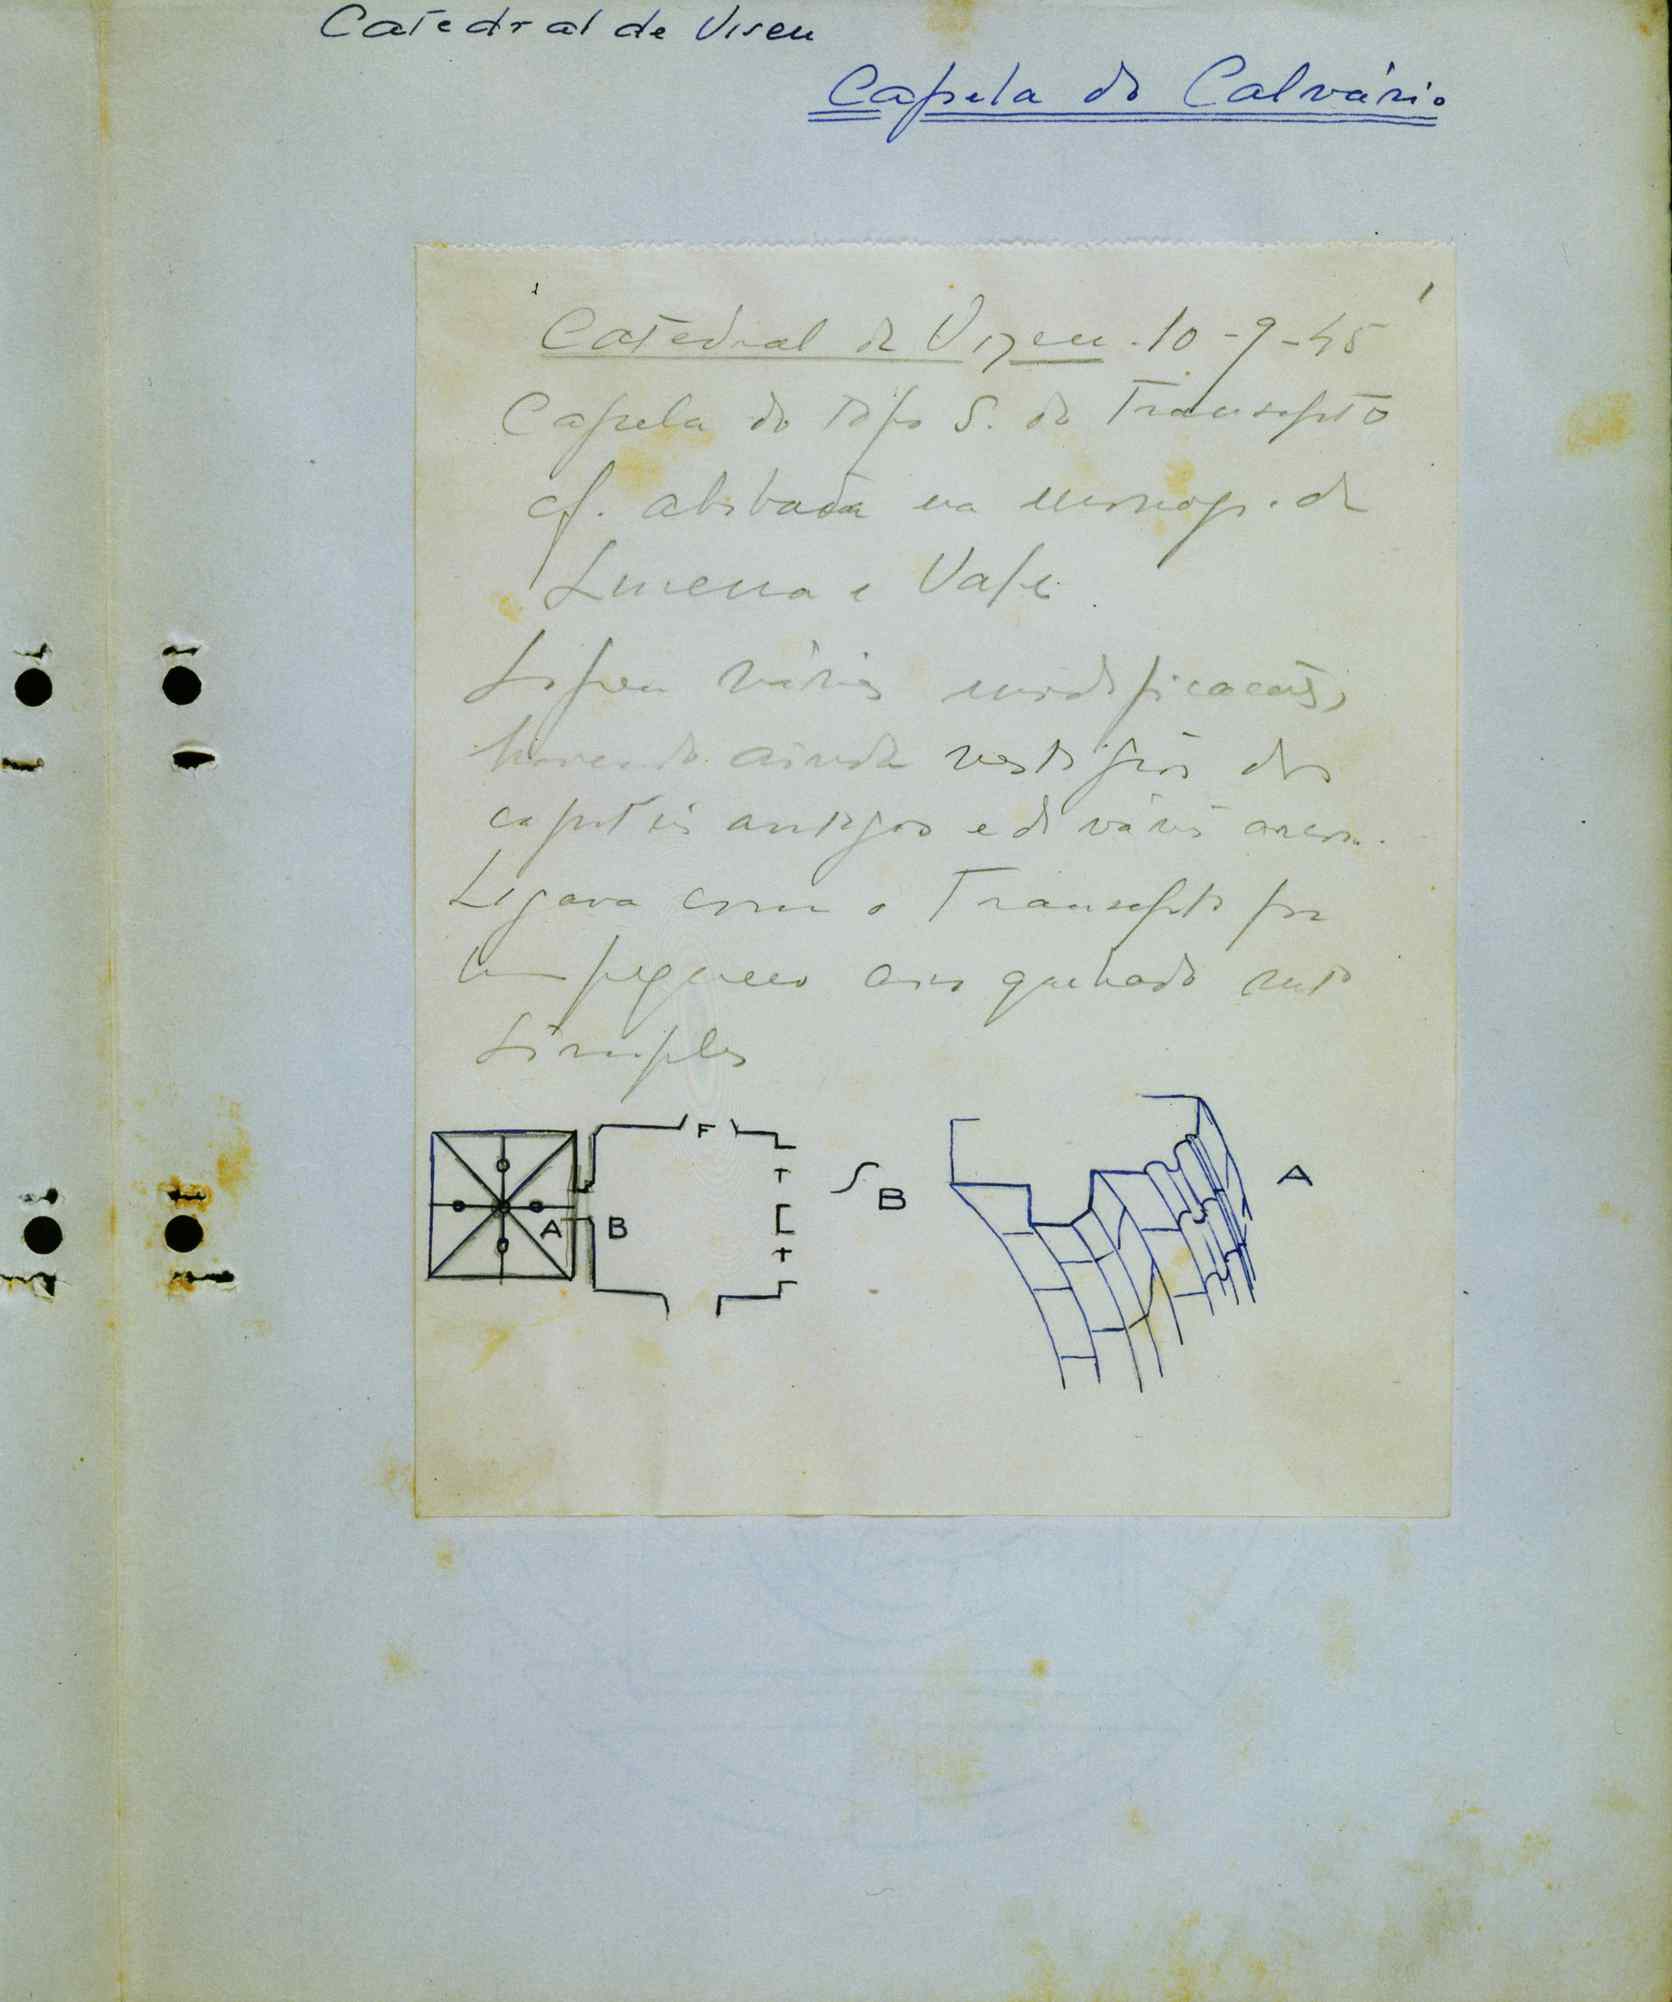 Catedral de Viseu
Capela do Calvário
Catedral de Vizeu. 10-9-45
Capela do topo S. do Transepto
cf. abobada na monogr. de
Lucena e Vale
Sofreu várias modificacões,
havendo ainda vestigios dos
capiteis antigos e de vários arcos.
Ligava com o Transepto por
um pequeno arco quebrado mto
simples
F
A B
S B
A